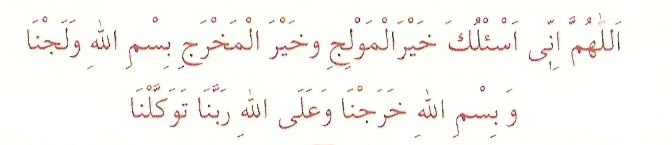 اَللّٰهُمَّ اِنِّی اَسْئَلُكَ خَیْرَالْمَوْلِجِ وخَیْرَ الْمَخْرَجِ بِسْمِ اللهِ وَلَجْنَا
وَ بِسْمِ اللهِ خَرَجْنَا وَعَلَی اللهِ رَبَّنَا تَوَكَّلْنَا